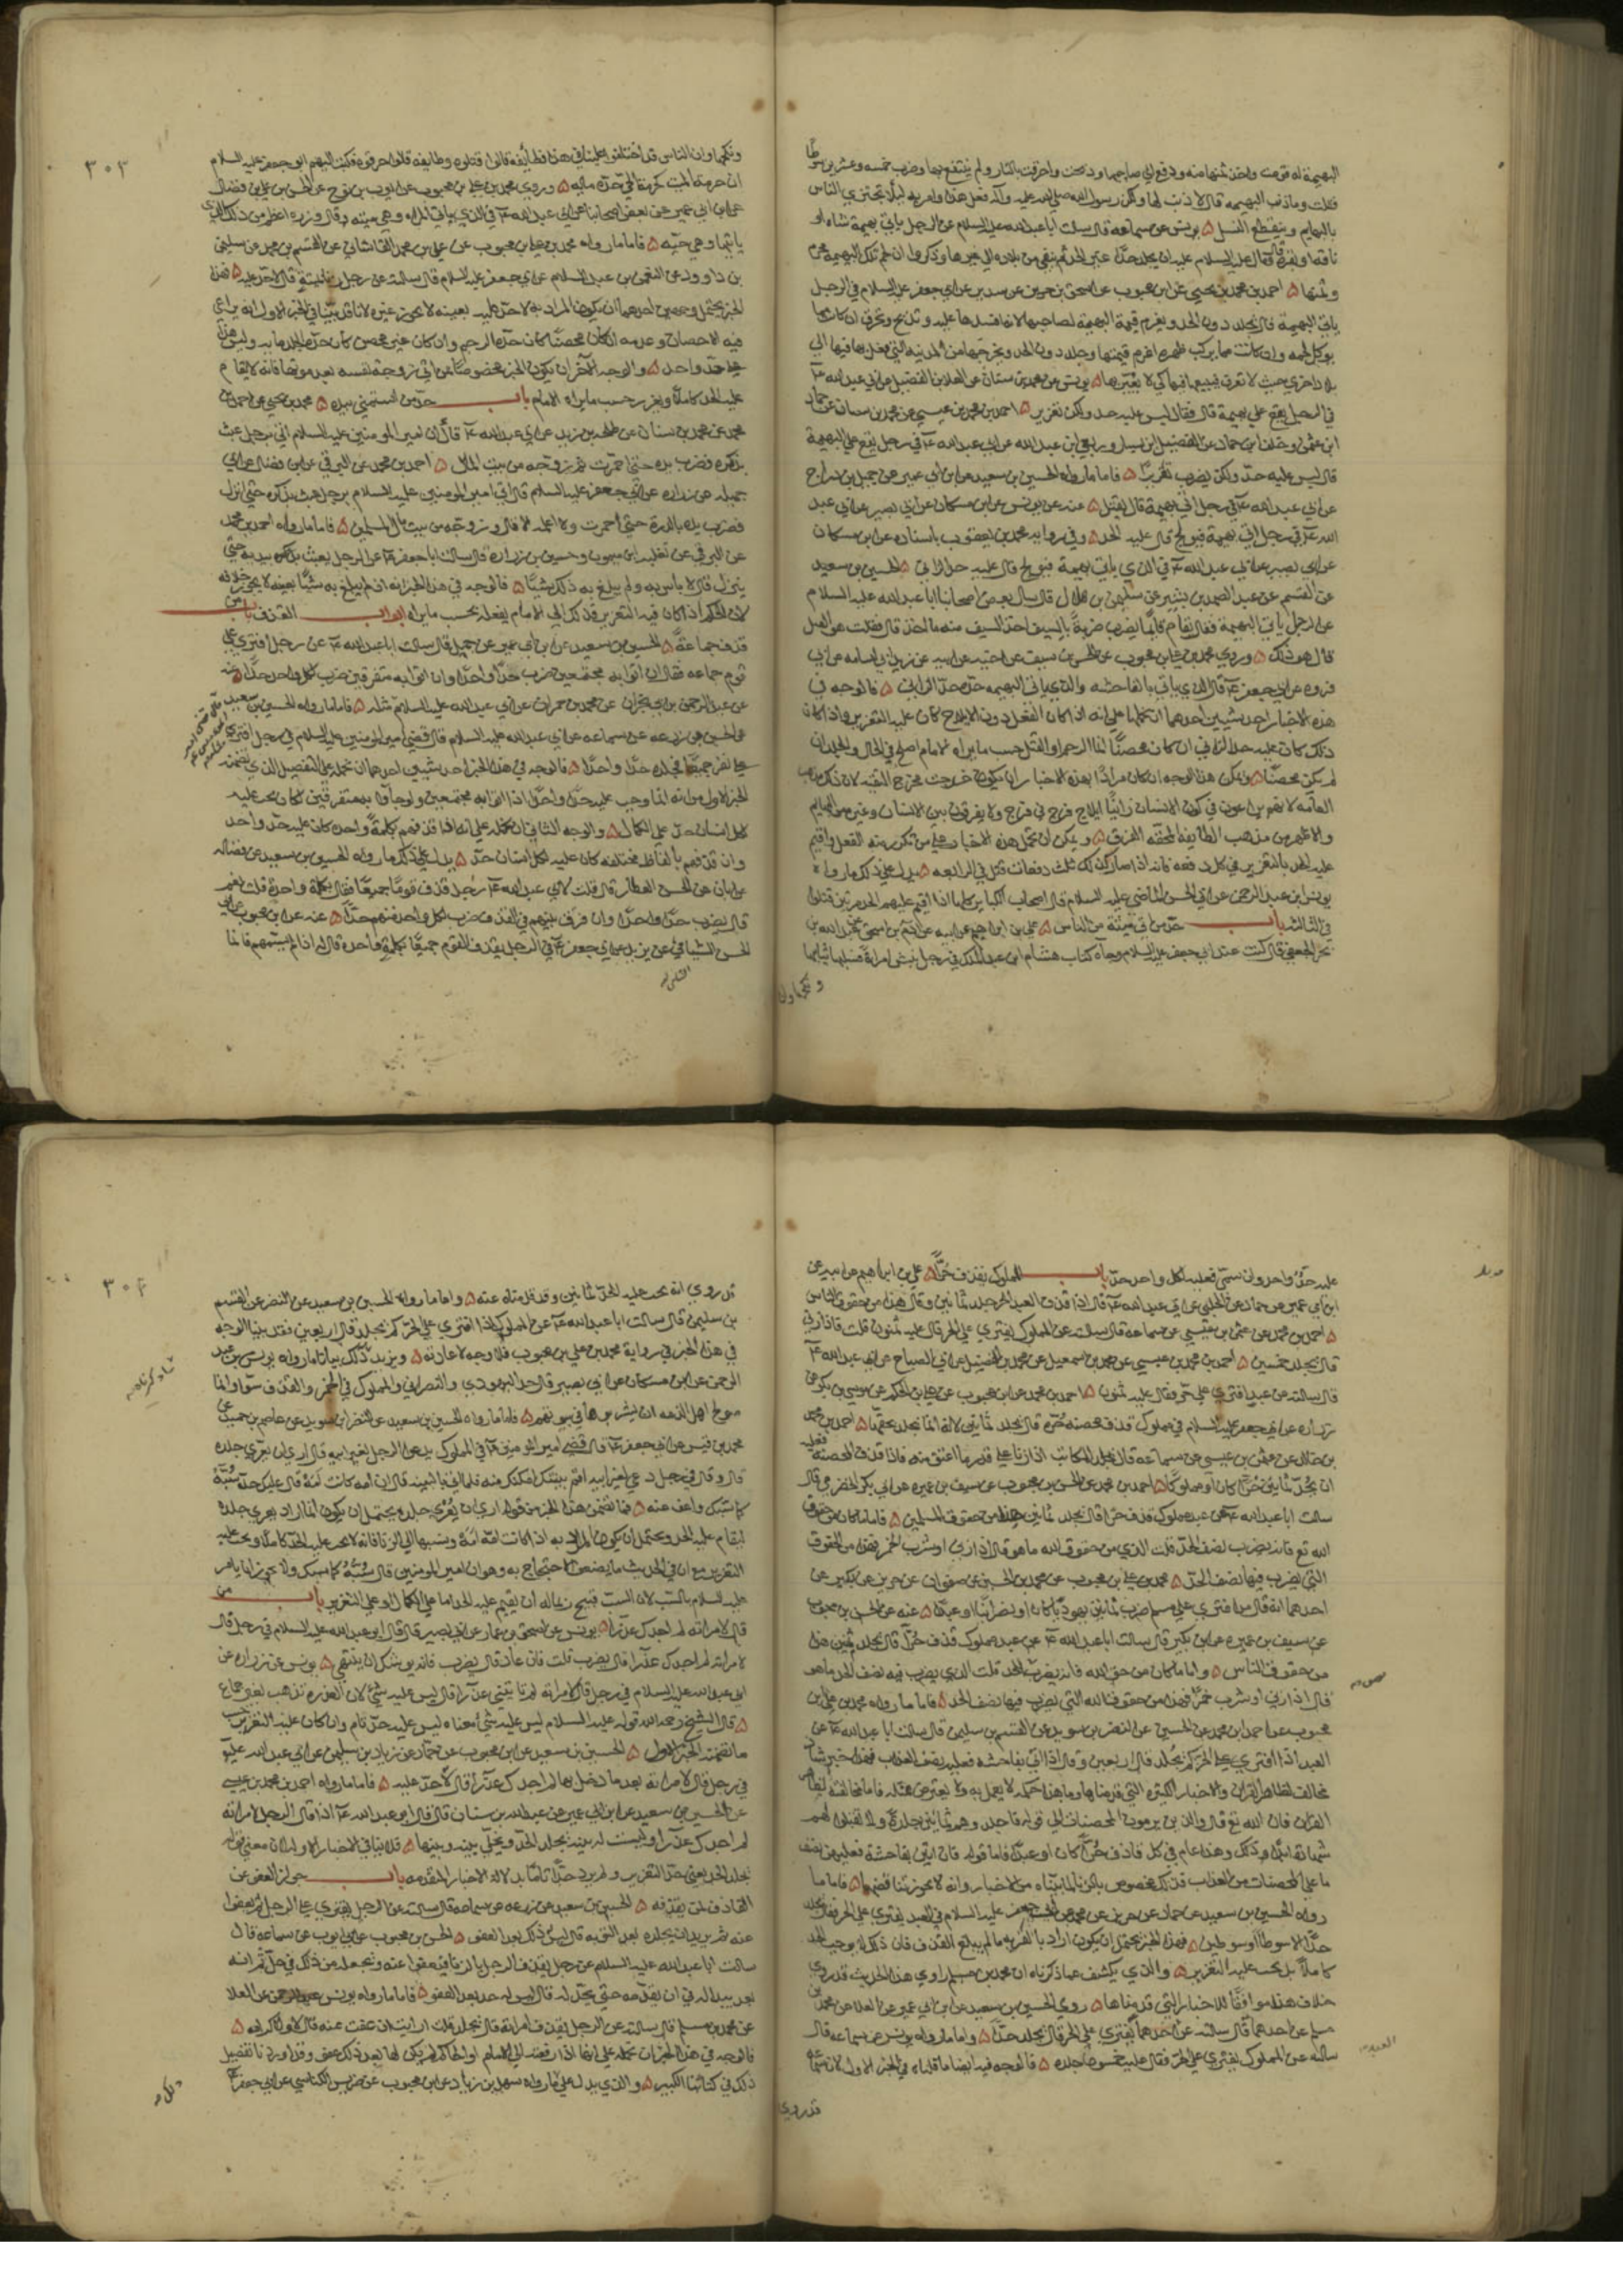 البهيمة له قومت واخذ ثمنها منه ودفع الى صاحبها وذبحت واحرقت بالنار ولم ينتفع بها وضرب خمسه وعشرين سوطا
فقلت وما ذنب البهيمه قال لا ذنب لها ولكن رسول الله صلى الله عليه وآله فعل هذا وامر به ليلا يجتزي الناس
بالبهايم وينقطع النسل ۵ يونس عن سماعه قال سالت ابا عبدالله عليه السلام عن الرجل ياتي بهيمة شاه او
ناقه او بقره قال فقال عليه السلام عليه ان يجلد حدا غير الحد ثم ينفى من بلاده الى غيرها وذكروا ان لحم تلك البهيمة محرم
وثمنها ۵ احمد بن محمد بن يحيى عن ابن محبوب عن اسحق بن جرير عن سدير عن ابي جعفر عليه السلام في الرجل
ياتي البهيمة قال يجلد دون الحد ويغرم قيمة البهيمة لصاحبها لانه افسدها عليه وتذبح وتحرق ان كان مما
يوكل لحمه وان كانت مما يركب ظهره اغرم قيمتها وجلد دون الحد ويخرجها من المدينه التي فعل بها فيها الى
بلاد اخرى حيث لا تعرف فيبيعها فيها كي لا يعير بها ۵ يونس عن محمد بن سنان عن العلا بن الفضيل عن ابي عبدالله ع
في الرجل يقع على بهيمة قال فقال ليس عليه حد ولكن تعزير ۵ احمد بن محمد بن عيسى عن محمد بن سنان عن حماد
ابن عثمن وخلف ابن حماد عن الفضيل ابن يسار وربعي ابن عبد الله عن ابي عبد الله ع في رجل يقع على البهيمة
قال ليس عليه حد ولكن يضرب تعزيرا ۵ فاما ما رواه الحسين بن سعيد عن ابن ابي عمير عن جميل بن دراج
عن ابي عبد الله ع في رجل اتى بهيمة قال يقتل ۵ عنه عن يونس عن ابن مسكان عن ابي بصير عن ابي عبد
الله ع في رجل اتى بهيمة فيولج قال عليه الحد ۵ وفي رواية محمد بن يعقوب باسناده عن ابن مسكان
عن ابي بصير عن ابي عبد الله ع في الذي ياتي بهيمة فيولج قال عليه حد الزاني ۵ الحسين بن سعيد
عن القسم عن عبد الصمد بن بشير عن سليمن بن هلال قال سال بعض اصحابنا ابا عبد الله عليه السلام
عن الرجل ياتي البهيمة فقال يقام قائما ثم يضرب ضربة بالسيف اخذ السيف منه ما اخذ قال فقلت هو القتل
قال هو ذلك ۵ وروى محمد بن علي بن محبوب عن الحسن بن سيف عن اخيه عن ابيه عن زيد ابي اسامه عن ابي
فروه عن ابي جعفر ع قال الذي ياتي بالفاحشه والذي ياتي البهيمه حده حد الزاني ۵ فالوجه في
هذه الاخبار احد شيئين احدهما ان نحملها على انه اذا كان الفعل دون الايلاج كان عليه التعزير واذا كان
ذلك كان عليه حد الزاني ان كان محصنا اما الرجم او القتل حسب ما يراه الامام اصلح في الحال والجلد ان
لم يكن محصنا ۵ ويمكن هذا الوجه ان كان مرادا بهذه الاخبار ان يكون خرجت مخرج التقيه لان ذلك مذهب
العامه لانهم يراعون في كون الانسان زانيا ايلاج فرج في فرج ولا يفرقون بين الانسان وغيره من البهايم
والاظهر من مذهب الطايفة المحقه الفرق ۵ ويمكن ان نحمل هذه الاخبار على من تكرر منه الفعل واقيم
عليه الحد بالتعزير في كل دفعه فانه اذا صار كذلك ثلث دفعات قتل في الرابعه ۵ يدل على ذلك ما رواه
يونس ابن عبد الرحمن عن ابي الحسن الماضي عليه السلام قال اصحاب الكباير كلها اذا اقيم عليهم الحد مرتين قتلوا
في الثالثه باب حد من اتى ميتة من الناس ۵ علي بن ابراهيم عن ابيه عن آدم بن اسحق عن عبد الله بن
محمد الجعفي قال كنت عند ابي جعفر عليه السلام وجآه كتاب هشام ابن عبد الملك في رجل نبش امراة فسلبها ثيابها
ونكحها وان
٣٠٣
ونكحها وان الناس قد اختلفوا علينا في هذا فطايفه قالوا قتلوه وطايفه قالوا احرقوه فكتب اليهم ابو جعفر عليه السلام
ان حرمة الميت كحرمة الحي حده مايه ۵ وروى محمد بن علي بن محبوب عن ايوب بن نوح عن الحسن بن علي بن فضال
عن ابن ابي عمير عن بعض اصحابنا عن ابي عبد الله ع في الذي ياتي المراه وهي ميته وقال وزره اعظم من ذلك الذي
ياتيها وهي حيه ۵ فاما ما رواه محمد بن علي بن محبوب عن علي بن محمد القاشاني عن القسم بن محمد عن سليمن
بن داوود عن النعمن بن عبد السلام عن ابي جعفر عليه السلام قال سالته عن رجل زنا بميتة قال لا حد عليه ۵ فهذا
الخبر يحتمل وجهين احدهما ان يكون المراد به لا حد عليه بعينه لا يجوز غيره لانا قد بينا في الخبر الاول انه يراعى
فيه الاحصان وعدمه ان كان محصنا كان حده الرجم وان كان غير محصن كان حده الجلد مايه وليس هنا
حد واحد ۵ والوجه الآخر ان يكون الخبر مخصوصا بمن اتى زوجة نفسه بعد موتها فانه لا يقام
عليه الحد كاملا ويعزر حسب ما يراه الامام باب حد من استمنى بيده ۵ محمد بن يحيى عن احمد بن
محمد عن محمد بن سنان عن طلحه بن زيد عن ابي عبد الله ع قال ان امير المومنين عليه السلام اتي برجل عبث
بذكره فضرب يده حتى احمرت ثم زوجه من بيت المال ۵ احمد بن محمد عن البرقي عن ابن فضال عن ابي
جميله عن زراره عن ابي جعفر عليه السلام قال اتي امير المومنين عليه السلام برجل عبث بذكره حتى انزل
فضرب يده بالدرة حتى احمرت ولا اعلمه الا قال وزوجه من بيت مال المسلمين ۵ فاما ما رواه احمد بن محمد
عن البرقي عن ثعلبه ابن ميمون وحسين بن زراره قال سالت ابا جعفر ع عن الرجل يعبث بذكره بيديه حتى
ينزل قال لا باس به ولم يبلغ به ذلك شيئا ۵ فالوجه في هذا الخبر انه اذا لم يبلغ به شيئا بعينه لا يجوز خلافه
لان الحكم اذا كان فيه التعزير فذلك الى الامام يفعله بحسب ما يراه ابواب القذف باب من
قذف جماعة ۵ الحسين بن سعيد عن ابن ابي عمير عن جميل قال سالت ابا عبد الله ع عن رجل افترى على
قوم جماعه فقال ان اتوا به مجتمعين ضرب حدا واحدا وان اتوا به متفرقين ضرب لكل واحد حدا ۵ عنه
عن عبد الرحمن بن ابي نجران عن محمد بن حمران عن ابي عبد الله عليه السلام مثله ۵ فاما ما رواه الحسين بن سعيد
عن الحسن عن زرعه عن سماعه عن ابي عبد الله عليه السلام قال قضى امير المومنين عليه السلام في رجل افترى
على نفر جميعا فجلده حدا واحدا ۵ فالوجه في هذا الخبر احد شيئين احدهما ان نحمله على التفصيل الذي تضمنه
الخبر الاول من انه انما وجب عليه حدا واحدا اذا اتوا به مجتمعين ولو جاءوا به متفرقين لكان يجب عليه
لكل انسان حد على الكمال ۵ والوجه الثاني ان نحمله على انه اذا قذفهم بكلمة واحده كان عليه حد واحد
وان قذفهم بالفاظ مختلفه كان عليه لكل انسان حد ۵ يدل على ذلك ما رواه الحسين بن سعيد عن فضاله
عن ابان عن الحسن العطار قال قلت لابي عبد الله ع رجل قذف قوما جميعا فقال بكلمة واحدة قلت نعم
قال يضرب حدا واحدا وان فرق بينهم في القذف ضرب لكل واحد منهم حدا ۵ عنه عن ابن محبوب عن ابي
الحسن الشامي عن بريد عن ابي جعفر ع في الرجل يقذف القوم جميعا بكلمة واحدة قال له اذا لم يسمهم فانما
عليه حد واحد وان سمى فعليه لكل واحد حد باب المملوك يقذف حرا ۵ علي بن ابراهيم عن ابيه عن
ابن ابي عمير عن حماد عن الحلبي عن ابي عبد الله ع قال اذا قذف العبد الحر جلد ثمانين وقال هذا من حقوق الناس
۵ احمد بن محمد عن عثمن بن عيسى عن سماعه قال سالته عن المملوك يفتري على الحر قال عليه ثمنون قلت فاذا زنى
قال يجلد خمسين ۵ احمد بن محمد بن عيسى عن محمد بن اسمعيل عن محمد بن الفضيل عن ابي الصباح عن ابي عبد الله ع
قال سالته عن عبد افترى على حر فقال عليه ثمنون ۵ احمد بن محمد عن ابن محبوب عن علي بن الحكم عن موسى بن بكر عن
زراره عن ابي جعفر عليه السلام في مملوك قذف محصنه حره قال يجلد ثمانين لانه انما يجلد بحقها ۵ احمد بن محمد
بن خالد عن عثمن بن عيسى عن سماعه قال يجلد المكاتب اذا زنا على قدر ما اعتق منه فاذا قذف المحصنه فعليه
ان يجلد ثمانين حرا كان او مملوكا ۵ احمد بن محمد عن الحسن بن محبوب عن سيف بن عميره عن ابي بكر الحضرمي قال
سالت ابا عبد الله ع عن عبد مملوك قذف حرا قال يجلد ثمانين هذا من حقوق المسلمين ۵ فاما ما كان من حقوق
الله تع فانه يضرب نصف الحد قلت الذي من حقوق الله ما هو قال اذا زنى او شرب الخمر فهذا من الحقوق
التي يضرب فيها نصف الحد ۵ محمد بن علي بن محبوب عن محمد بن الحسين عن صفوان عن حريز عن بكير عن
احدهما انه قال من افترى على مسلم ضرب ثمانين يهوديا كان او نصرانيا او عبدا ۵ عنه عن الحسن بن محبوب
عن سيف بن عميره عن ابن بكير قال سالت ابا عبد الله ع عن عبد مملوك قذف حرا قال يجلد ثمنين هذا
من حقوق الناس ۵ واما ما كان من حق الله فانه يضرب الحد قلت الذي يضرب فيه نصف الحد ما هو
قال اذا زنى او شرب خمرا فهذا من حقوق الله التي يضرب فيها نصف الحد ۵ فاما ما رواه محمد بن علي بن
محبوب عن احمد ابن محمد عن الحسين عن النضر بن سويد عن القسم بن سليمن قال سالت ابا عبد الله ع عن
العبد اذا افترى على الحر كم يجلد قال اربعين وقال اذا اتى بفاحشه فعليه نصف العذاب فهذا خبر شاذ
مخالف لظاهر القرآن والاخبار الكثيره التي قدمناها وما هذا حكمه لا يعمل به ولا يعترض بمثله فاما مخالفته لظاهر
القرآن فان الله تع قال والذين يرمون المحصنات الى قوله فاجلدوهم ثمانين جلدة ولا تقبلوا لهم
شهادة ابدا وذلك وهذا عام في كل قاذف حرا كان او عبدا فاما قوله فان اتين بفاحشة فعليهن نصف
ما على المحصنات من العذاب فذلك مخصوص بالزنا لما بيناه من الاخبار وانه لا يجوز تناقضها ۵ فاما ما
رواه الحسين بن سعيد عن حماد عن حريز عن محمد عن ابي جعفر عليه السلام في العبد يفتري على الحر قال يجلد
حدا الا سوطا او سوطين ۵ فهذا الخبر يحتمل ان يكون اراد بالفريه ما لم يبلغ القذف فان ذلك لا يوجب الحد
كاملا بل يجب عليه التعزير ۵ والذي يكشف عما ذكرناه ان محمد بن مسلم راوي هذا الحديث قد روى
خلاف هذا موافقا للاخبار التي قدمناها ۵ روى الحسين بن سعيد عن ابن ابي عمير عن العلا عن محمد بن
مسلم عن احدهما قال سالته عن العبد يفتري على الحر قال يجلد حدا ۵ واما ما رواه يونس عن سماعه قال
سالته عن المملوك يفتري على الحر فقال عليه خمسون جلده ۵ فالوجه فيه ايضا ما قلناه في الخبر الاول لان سماعه
قد روى
٣٠٤
قد روى انه يجب عليه الحد ثمانين وقد قدمناه عنه ۵ واما ما رواه الحسين بن سعيد عن النضر عن القسم
بن سليمن قال سالت ابا عبد الله ع عن المملوك اذا افترى على الحر كم يجلد قال اربعين فقد بينا الوجه
في هذا الخبر في رواية محمد بن علي بن محبوب فلا وجه لاعادته ۵ ويزيد ذلك بيانا ما رواه يونس بن عبد
الرحمن عن ابن مسكان عن ابي بصير قال حد اليهودي والنصراني والمملوك في الخمر والقذف سواء وانما
صولح اهل الذمه ان يشربوها في بيوتهم ۵ فاما ما رواه الحسين بن سعيد عن النضر ابن سويد عن عاصم بن حميد عن
محمد بن قيس عن ابي جعفر ع قال قضى امير المومنين ع في المملوك يدعو الرجل لغير ابيه قال ارى ان يعرى جلده
قال وقال في رجل دعي لغير ابيه اقم بينتك امكنك منه فلما اتى بالبينه قال ان امه كانت امة قال عليك حد سبه
كما سبك واعف عنه ۵ فما تضمن هذا الخبر من قوله ارى ان يعرى جلده يحتمل ان يكون انما اراد يعرى جلده
ليقام عليه الحد ويحتمل ان يكون المراد به اذا كانت امه امة ونسبها الى الزنا فانه لا يجب عليه الحد كاملا ويجب عليه
التعزير مع ان في الحديث ما يضعف الاحتجاج به وهو ان امير المومنين قال سبه كما سبك ولا يجوز انما يامر
عليه السلام بالسب لان السب قبيح وانما له ان يقيم عليه الحد اما على الكمال او على التعزير باب من
قال لامراته لم اجدك عذرا ۵ يونس عن اسحق بن عمار عن ابي بصير قال قال ابو عبد الله عليه السلام في رجل قال
لامراته لم اجدك عذرا قال يضرب قلت فان عاد قال يضرب فانه يوشك ان ينتهي ۵ يونس عن زراره عن
ابي عبد الله عليه السلام في رجل قال لامراته لم تاتيني عذرا قال ليس عليه شئ لان العذره تذهب بغير جماع
۵ قال الشيخ رحمه الله قوله عليه السلام ليس عليه شئ معناه ليس عليه حد تام وان كان عليه التعزير حسب
ما تضمنه الخبر الاول ۵ الحسين بن سعيد عن ابن محبوب عن حماد عن زياد بن سليمن عن ابي عبد الله عليه
في رجل قال لامراته بعد ما دخل بها لم اجدك عذرا قال لا حد عليه ۵ فاما ما رواه احمد بن محمد بن عيسى
عن الحسين بن سعيد عن ابن ابي عمير عن عبد الله بن سنان قال قال ابو عبد الله ع اذا قال الرجل لامراته
لم اجدك عذرا وليست له بينه يجلد الحد ويخلى بينه وبينها ۵ فلا ينافي الاخبار الاوله لان معنى قوله
يجلد الحد يعني حد التعزير ولم يرد حدا تاما بدلالة الاخبار المتقدمه باب جواز العفو عن
القاذف لمن يقذفه ۵ الحسين بن سعيد عن زرعه عن سماعه قال سالته عن الرجل يفتري على الرجل ثم يعفوا
عنه ثم يريد ان يجلده بعد التوبه قال ليس ذلك بعد العفو ۵ الحسن بن محبوب عن ابي ايوب عن سماعه قال
سالت ابا عبد الله عليه السلام عن رجل يقذف الرجل بالزنا فيعفوا عنه ويجعله من ذلك في حل ثم انه
بعد يبدا له في ان يقدمه حتى يجلد له قال ليس له حد بعد العفو ۵ فاما ما رواه يونس عن العلا
عن محمد بن مسلم قال سالته عن الرجل يقذف امراته قال يجلد قلت ارايت ان عفت عنه قال لا ولا كرامه ۵
فالوجه في هذا الخبر ان نحمله على انها اذا رفعته الى الامام او الحاكم لم يكن لها بعد ذلك عفو وقد اوردنا تفصيل
ذلك في كتابنا الكبير ۵ والذي يدل على ما رواه سهل بن زياد عن ابن محبوب عن ضريس الكناسي عن ابي جعفر ع